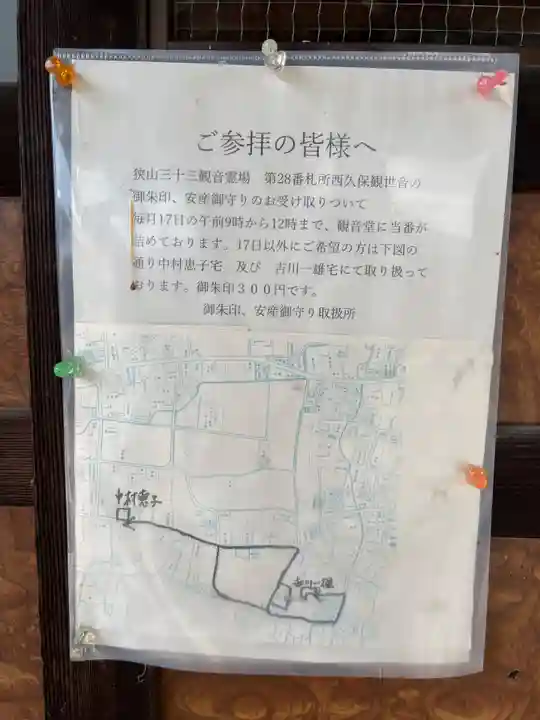 ご参拝の皆様へ
狭山三十三観音霊場　第28番札所西久保観世音の
御朱印、安産御守りのお受け取りついて
毎月17日の午前9時から12時まで、観音堂に当番が
詰めております。17日以外にご希望の方は下図の
通り中村恵子宅　及び　吉川一雄宅にて取り扱って
おります。御朱印３００円です。
御朱印、安産御守り取扱所
中村恵子